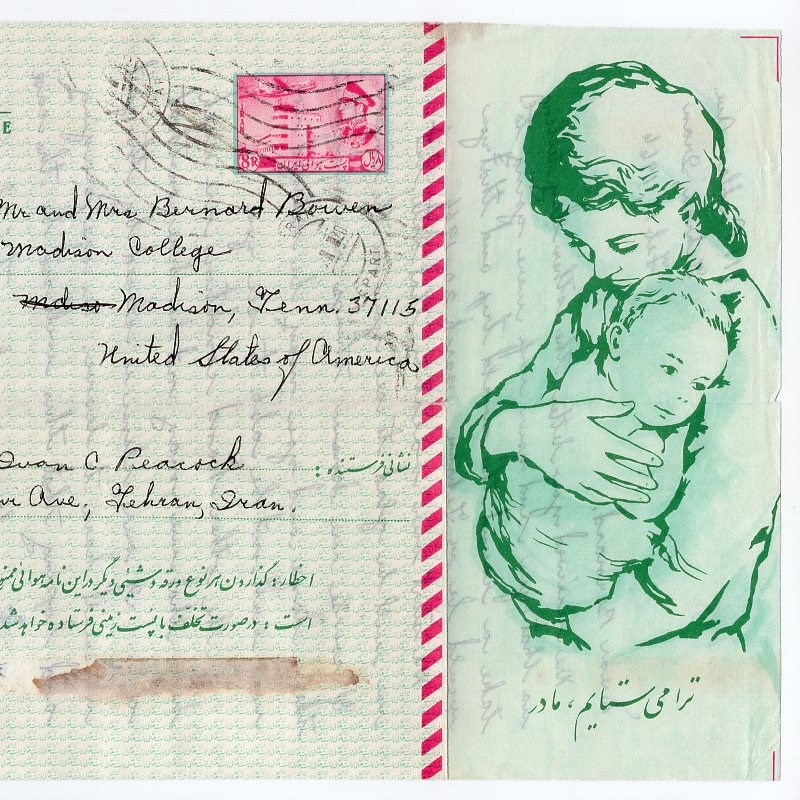 E
IRAN
8R ۸ریال
پست هوائی ایران
Mr and Mrs Bernard Bowen
Madison College
Madison, Tenn. 37115
United States of America
نشانی فرستنده :
Ivan C. Peacock
Ave, Tehran, Iran.
اخطار : گذاردن هر نوع ورقه وشیئی دیگر در این نامه هوائی ممنوع
است : در صورت تخلف با پست زمینی فرستاده خواهد شد
ترا می ستایم ، مادر